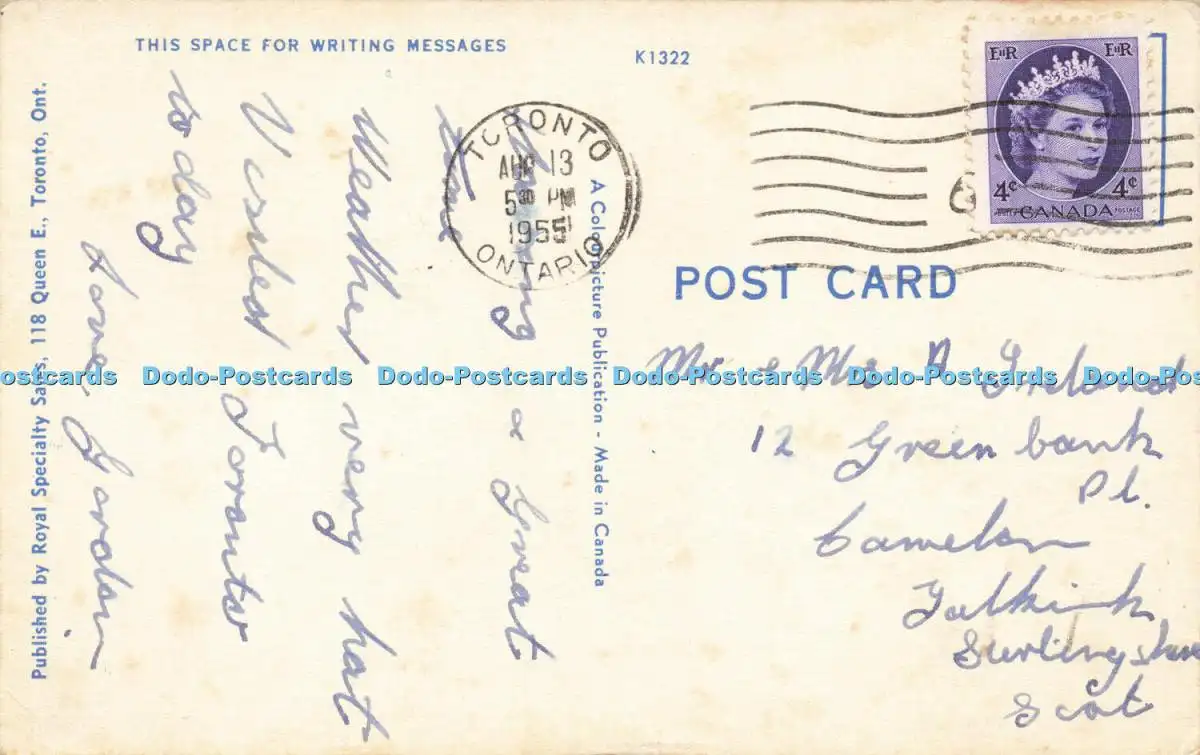 THIS SPACE FOR WRITING MESSAGES
K1322
Having a Great
time
Weather very hot
Visited Toronto
to day
Love, Gordon
Published by Royal Specialty Sales, 118 Queen E., Toronto, Ont.
A Colourpicture Publication - Made in Canada
TORONTO
AUG 13
5 30 PM
1955
ONTARIO
EIIR EIIR
4¢ 4¢
POSTES CANADA POSTAGE
POST CARD
Mr & Mrs A Ireland
12 Green bank
Pl.
Camelon
Falkirk
Stirlingshire
Scot
Dodo-Postcards Dodo-Postcards Dodo-Postcards Dodo-Postcards Dodo-Postcards